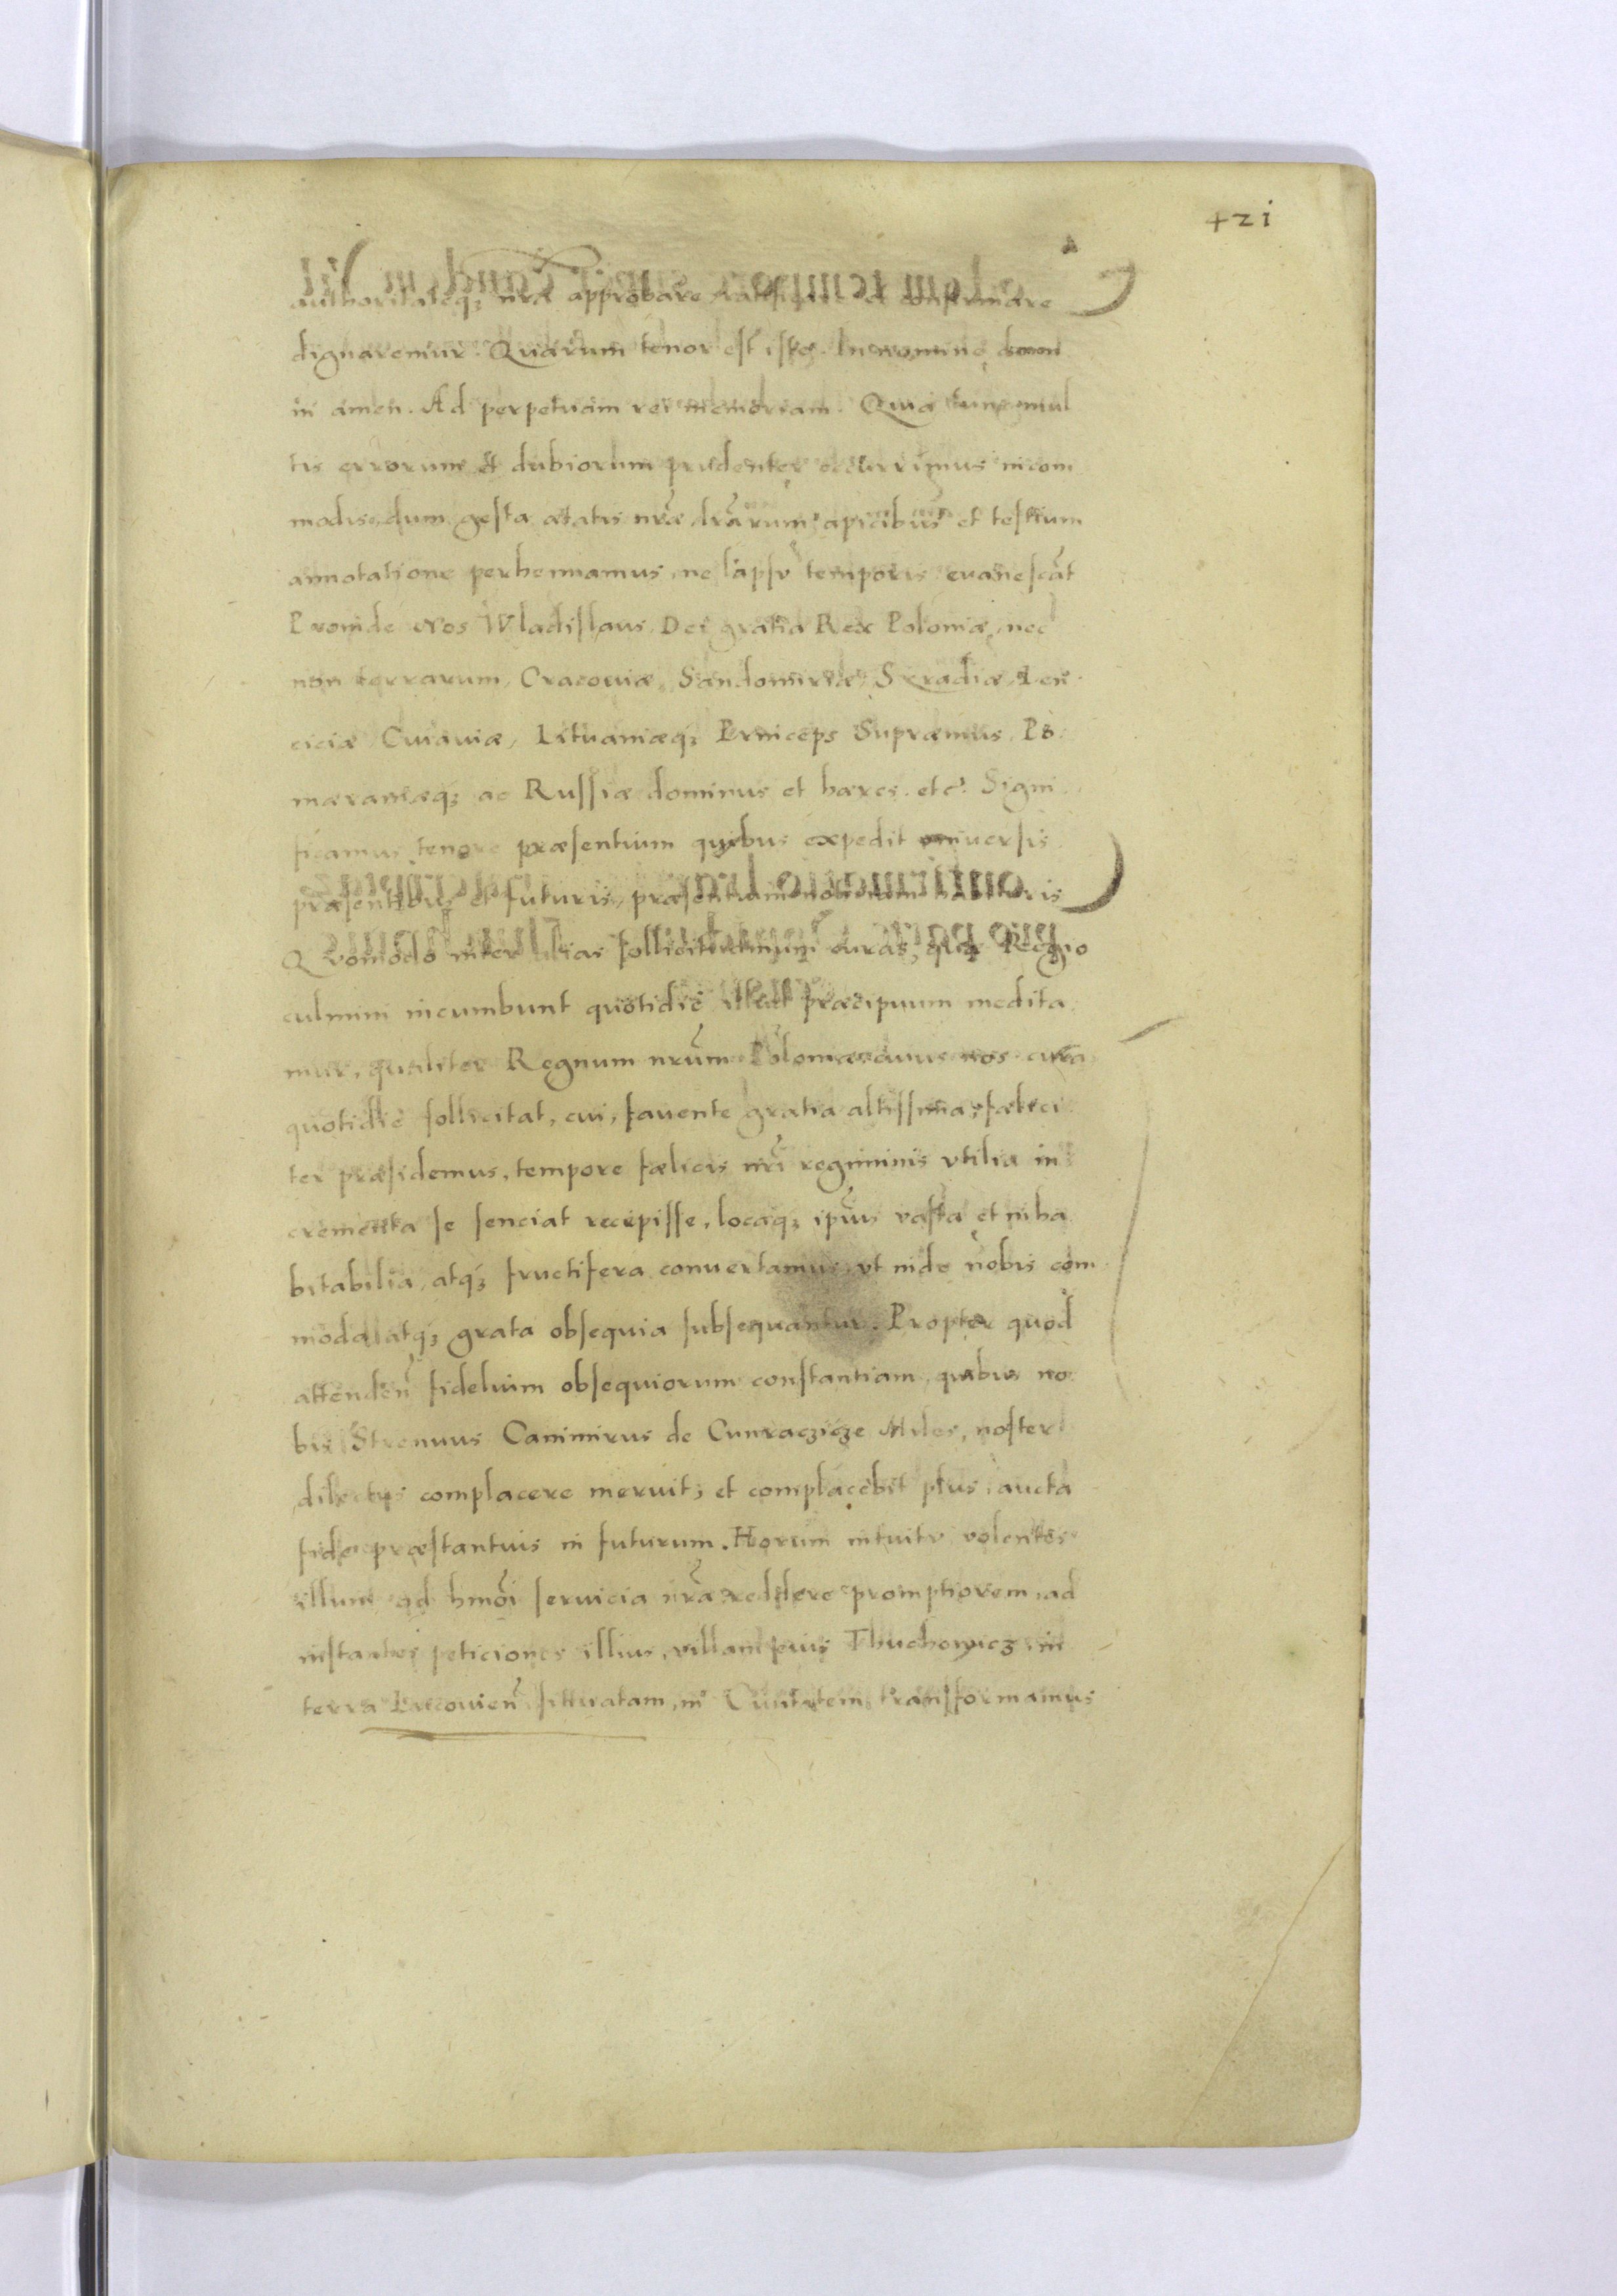 421
authoritateq₃ nrã approbare ratificare et confirmare
dignaremur. Quarum tenor est iste. In nomine domi
ni amen. Ad perpetuam rei memoriam. Quia tunc mul
tis errorum et dubiorum prudenter occurrimus incom
modis, dum gesta ætatis nræ lrãrum apicibus et testium
annotatione perhennamus, ne lapsu temporis evanescãt
Proinde Nos Wladislaus Dei gratia Rex Poloniæ, nec
non terrarum, Cracouiæ, Sandomiriæ, Syradiæ, Len
ciciæ Cuiauiæ, Lituaniæq₃ Princeps Supræmus, Po
mæraniæq₃ ac Russiæ dominus et hæres. etc. Signi
ficamus tenore præsentium quibus expedit vniuersis
præsentibus et futuris, præsentiam notitiam habituris
Quomodo inter alias sollicitudinum curas, quæ Regio
culmini incumbunt quotidiè illud præcipuum medita
mur, qualiter Regnum nrũm Poloniæ cuius nos cura
quotidiè sollicitat, cui, fauente gratia altissima, fælici
ter præsidemus, tempore fælicis nrĩ regiminis vtilia in
crementa se senciat recepisse, locaq₃ ipsius vasta et inha
bitabilia, atq₃ fructifera conuertamus, vt inde nobis com
moda atq₃ grata obsequia subsequantur. Propter quod
attenden̄ fidelium obsequiorum constantiam, quibus no
bis Strenuus Canimirus de Cunraczicze Miles, noster
dilectus complacere meruit; et complacebit plus, aucta
fide præstantius in futurum. Horum intuitu volentes
illum ad hmõi seruicia nrã reddere promptiorem, ad
instantes peticiones illius, villam suis Thuchowicz, in
terra Lucouien̄ sittuatam, in Ciuitatem transformamus